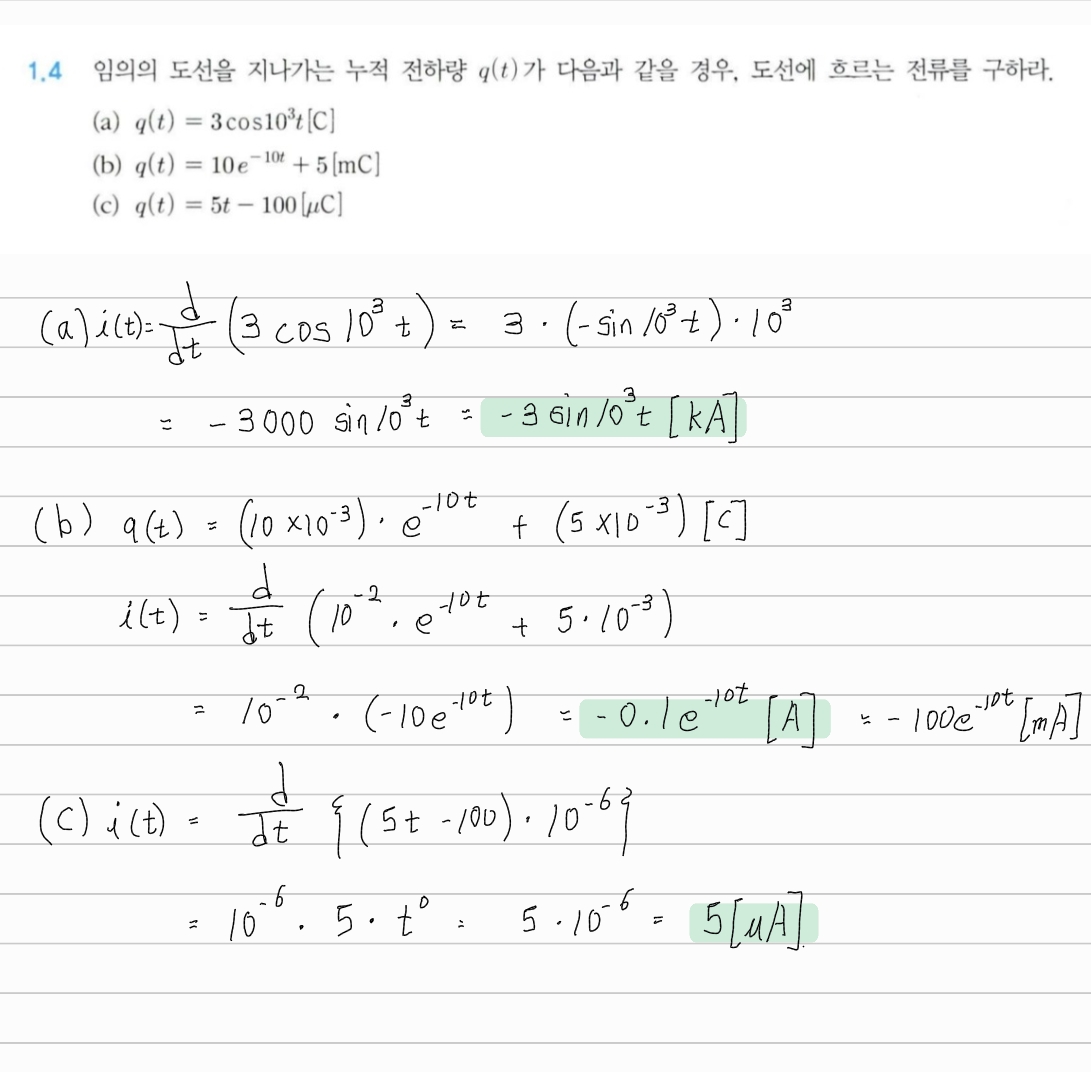 1.4 임의의 도선을 지나가는 누적 전하량 q(t)가 다음과 같을 경우, 도선에 흐르는 전류를 구하라.
(a) q(t) = 3cos10³t[C]
(b) q(t) = 10e⁻¹⁰ᵗ + 5[mC]
(c) q(t) = 5t − 100[μC]
(a) i(t) = d/dt (3 cos 10³ t) = 3 · (-sin 10³ t) · 10³
= -3000 sin 10³ t = -3 sin 10³ t [kA]
(b) q(t) = (10 × 10⁻³) · e⁻¹⁰ᵗ + (5 × 10⁻³) [C]
i(t) = d/dt (10⁻² · e⁻¹⁰ᵗ + 5 · 10⁻³)
= 10⁻² · (-10e⁻¹⁰ᵗ) = -0.1e⁻¹⁰ᵗ [A] = -100e⁻¹⁰ᵗ [mA]
(c) i(t) = d/dt {(5t - 100) · 10⁻⁶}
= 10⁻⁶ · 5 · t⁰ = 5 · 10⁻⁶ = 5[μA]